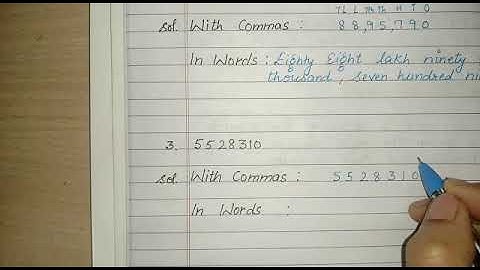 TL L TTh Th H T O
Sol. With Commas : 88,95,790
In Words : Eighty Eight lakh ninety
thousand, seven hundred
3. 5528310
Sol. With Commas : 5528310
In Words :